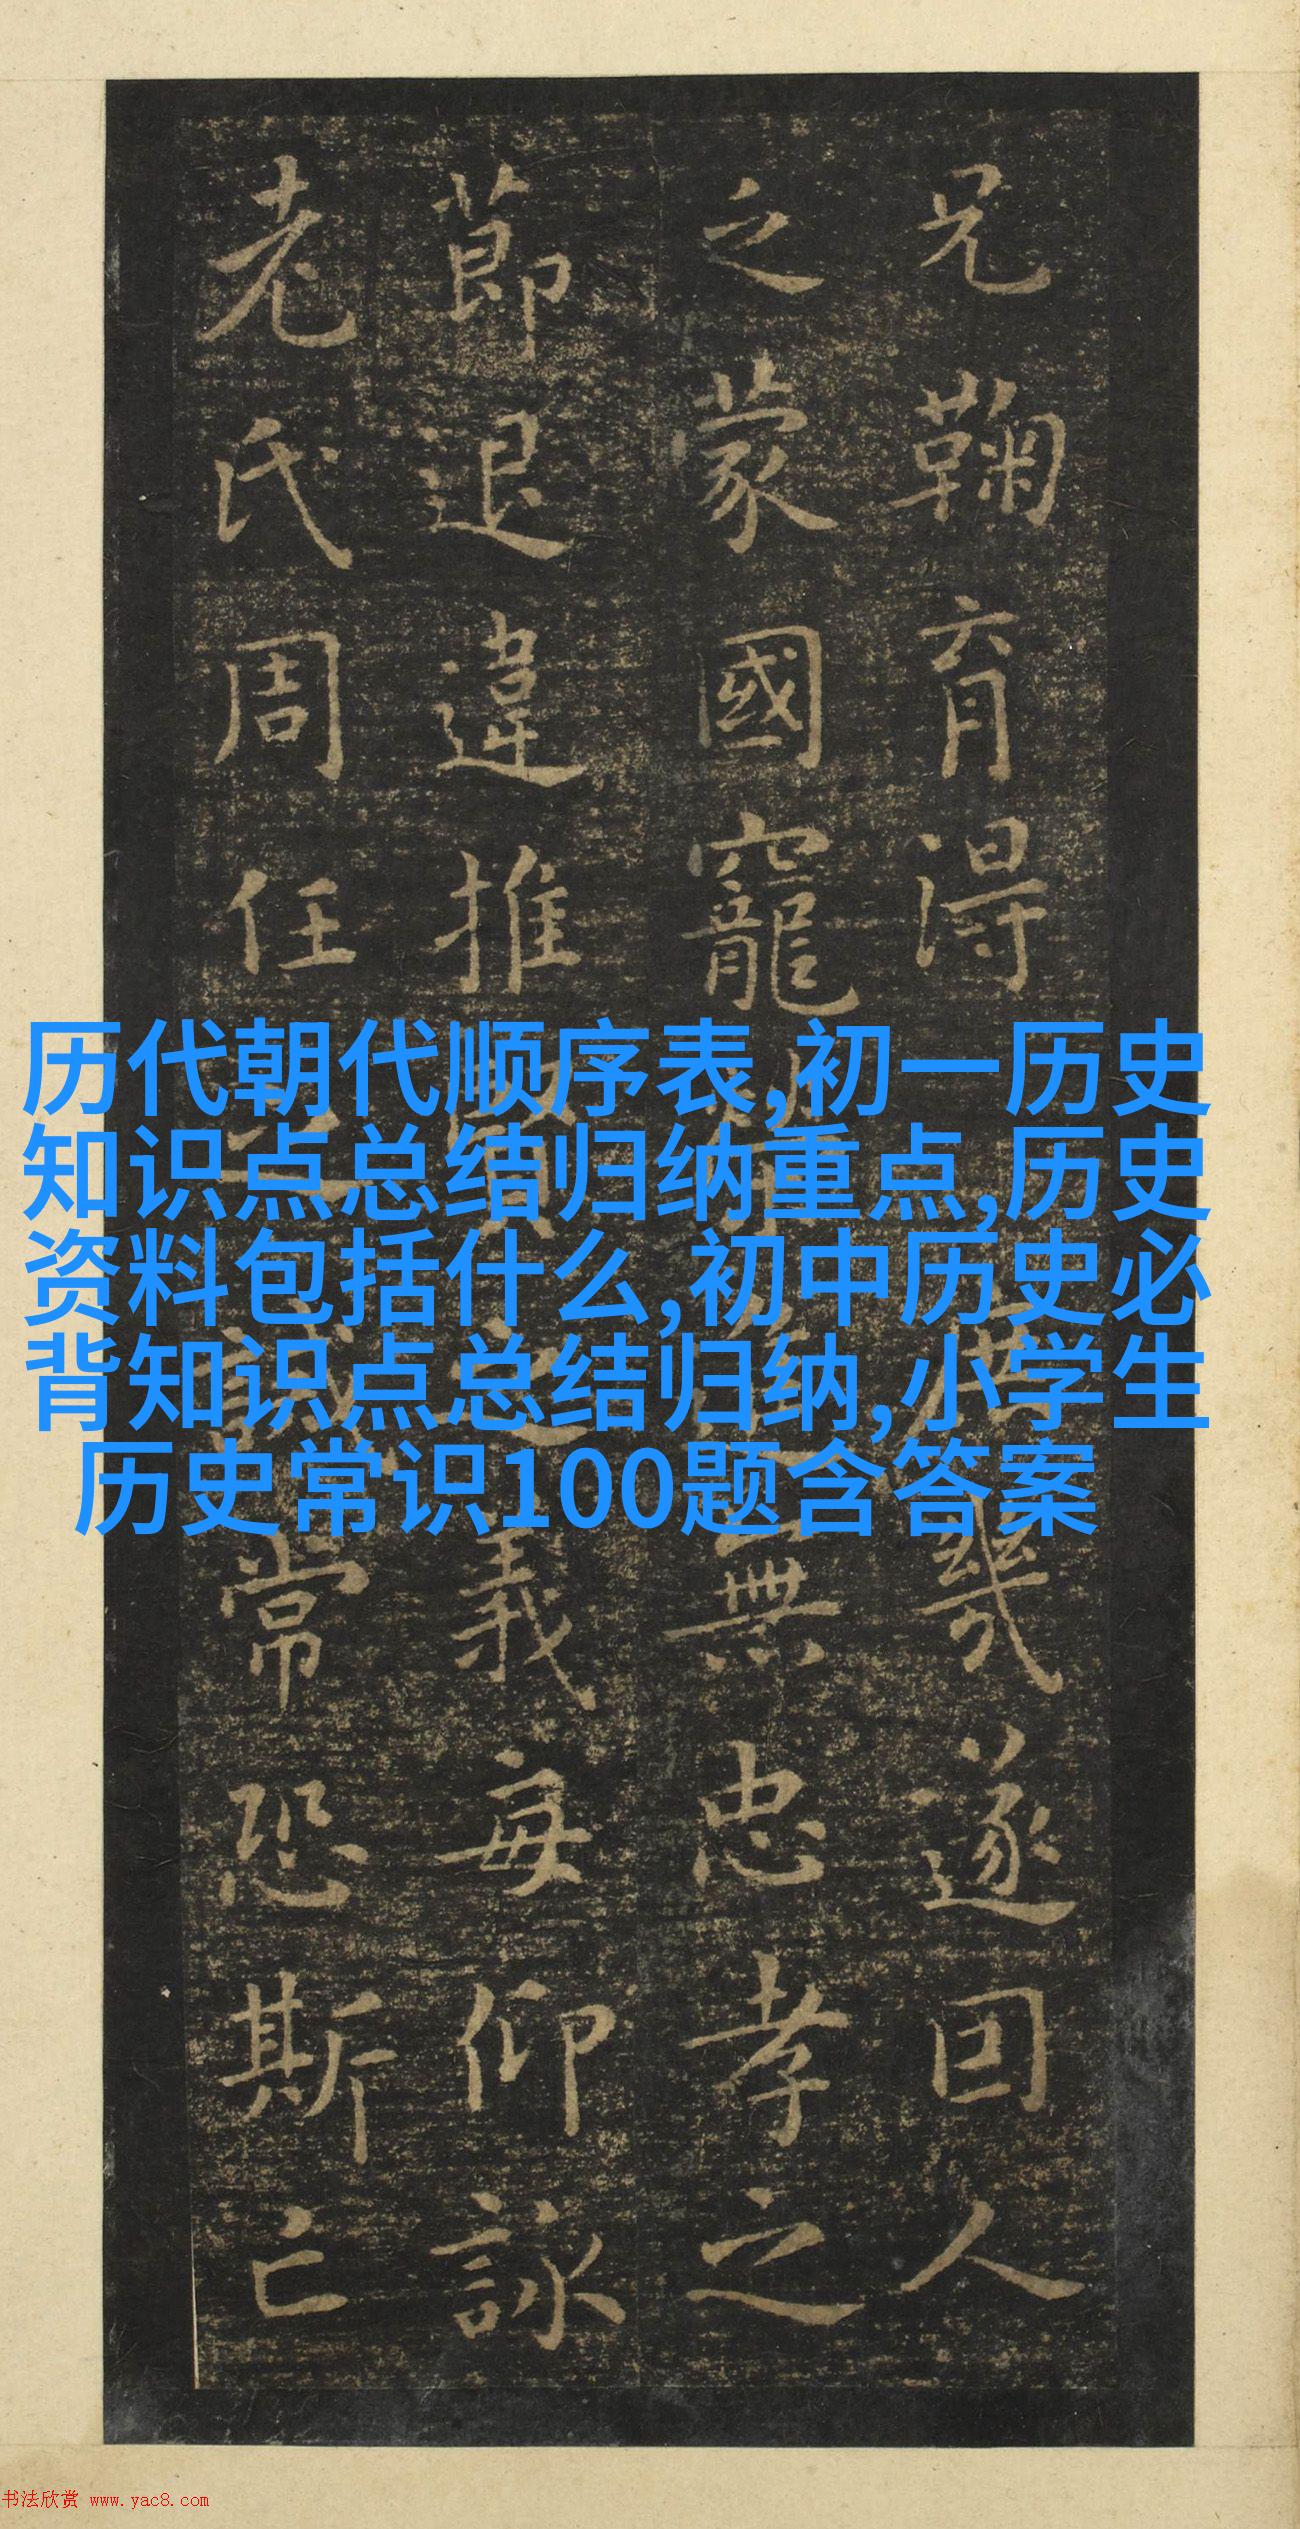 兄鞠育得 幾遂因人
之蒙國寵 無忠孝之
節退違推賢之義每仰詠
老氏周任之誡常恐斯亡
历代朝代顺序表,初一历史
知识点总结归纳重点,历史
资料包括什么,初中历史必
背知识点总结归纳,小学生
历史常识100题含答案
书法欣赏 www.yac8.com